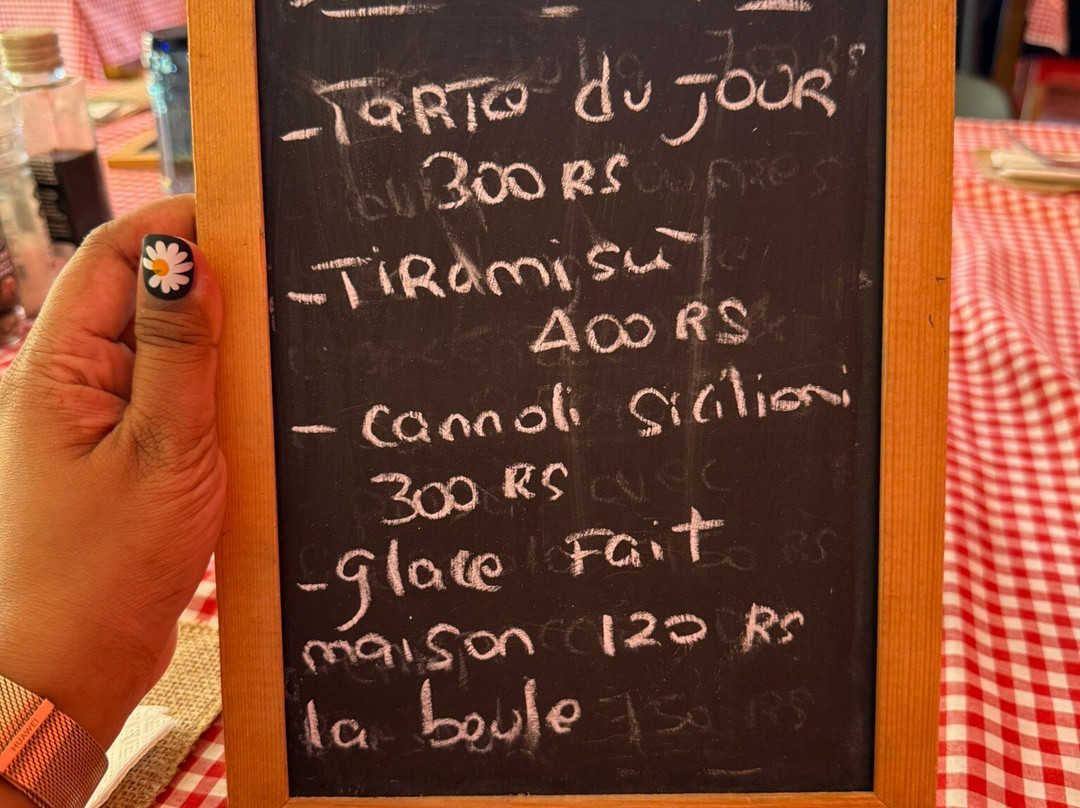 - TaRTe du JOUR
300 RS
- TiRamisù
400 RS
- cannoli Siciliani
300 RS
- glace Fait
maison 120 RS
la boule
HUAWEI